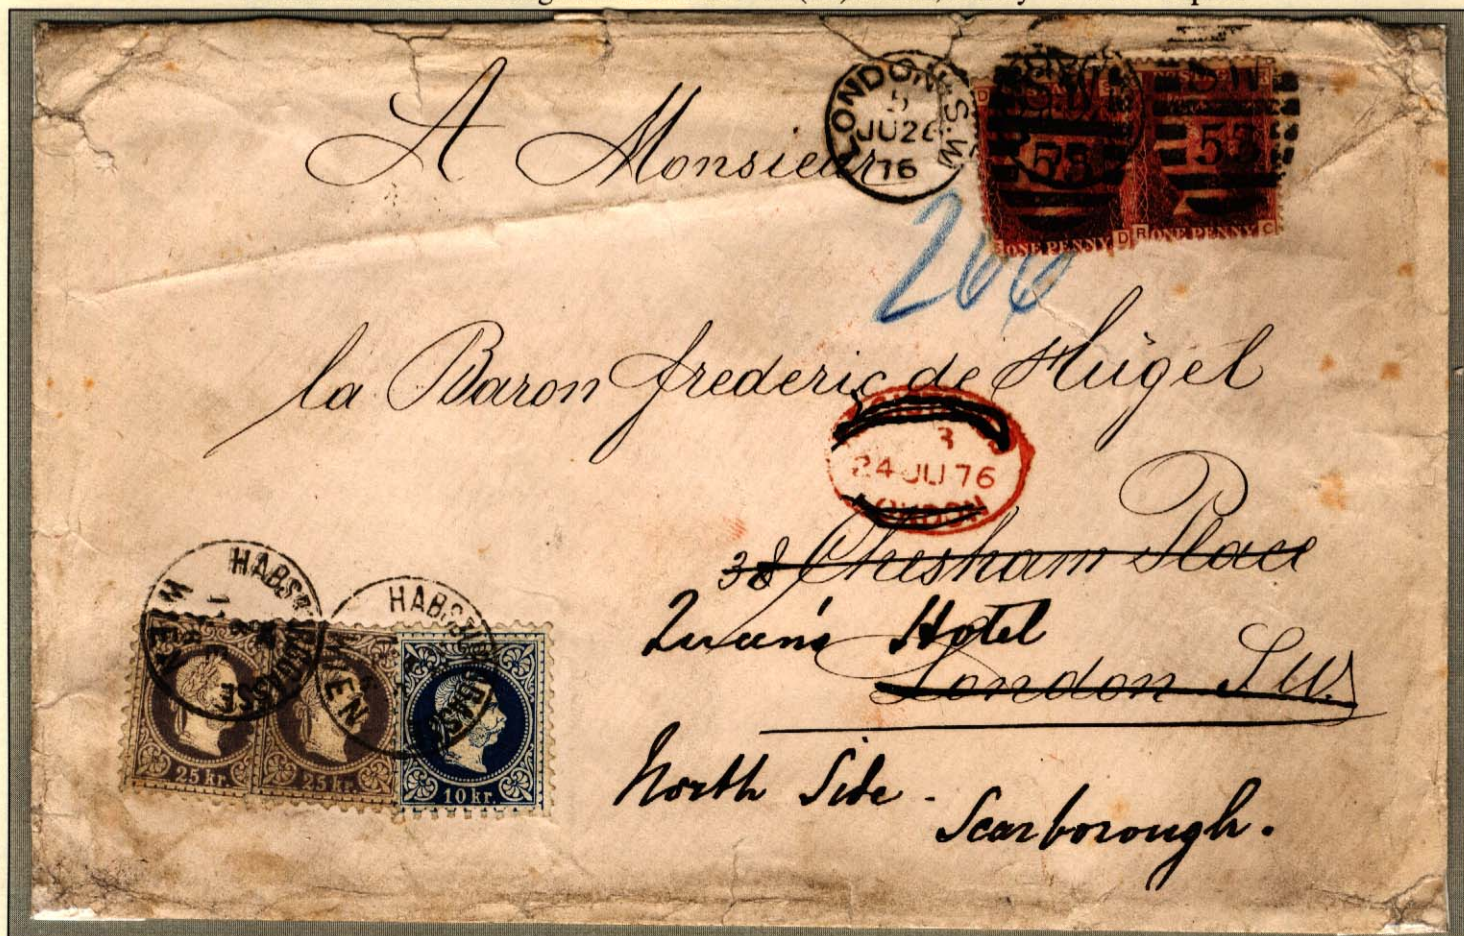 A Monsieur
LONDON. S.W.
5
JU26
76
S.W
53
S.W
53
ONE PENNY D
R ONE PENNY C
266
la Baron frederic de Hügel
3
24 JU 76
LONDON
38 Chesham Place
Queens Hotel
London S.W.
North Side -
Scarborough.
HABSBURGERGASSE
WIEN
HABSBURGERGASSE
WIEN
25 kr.
25 kr.
10 kr.